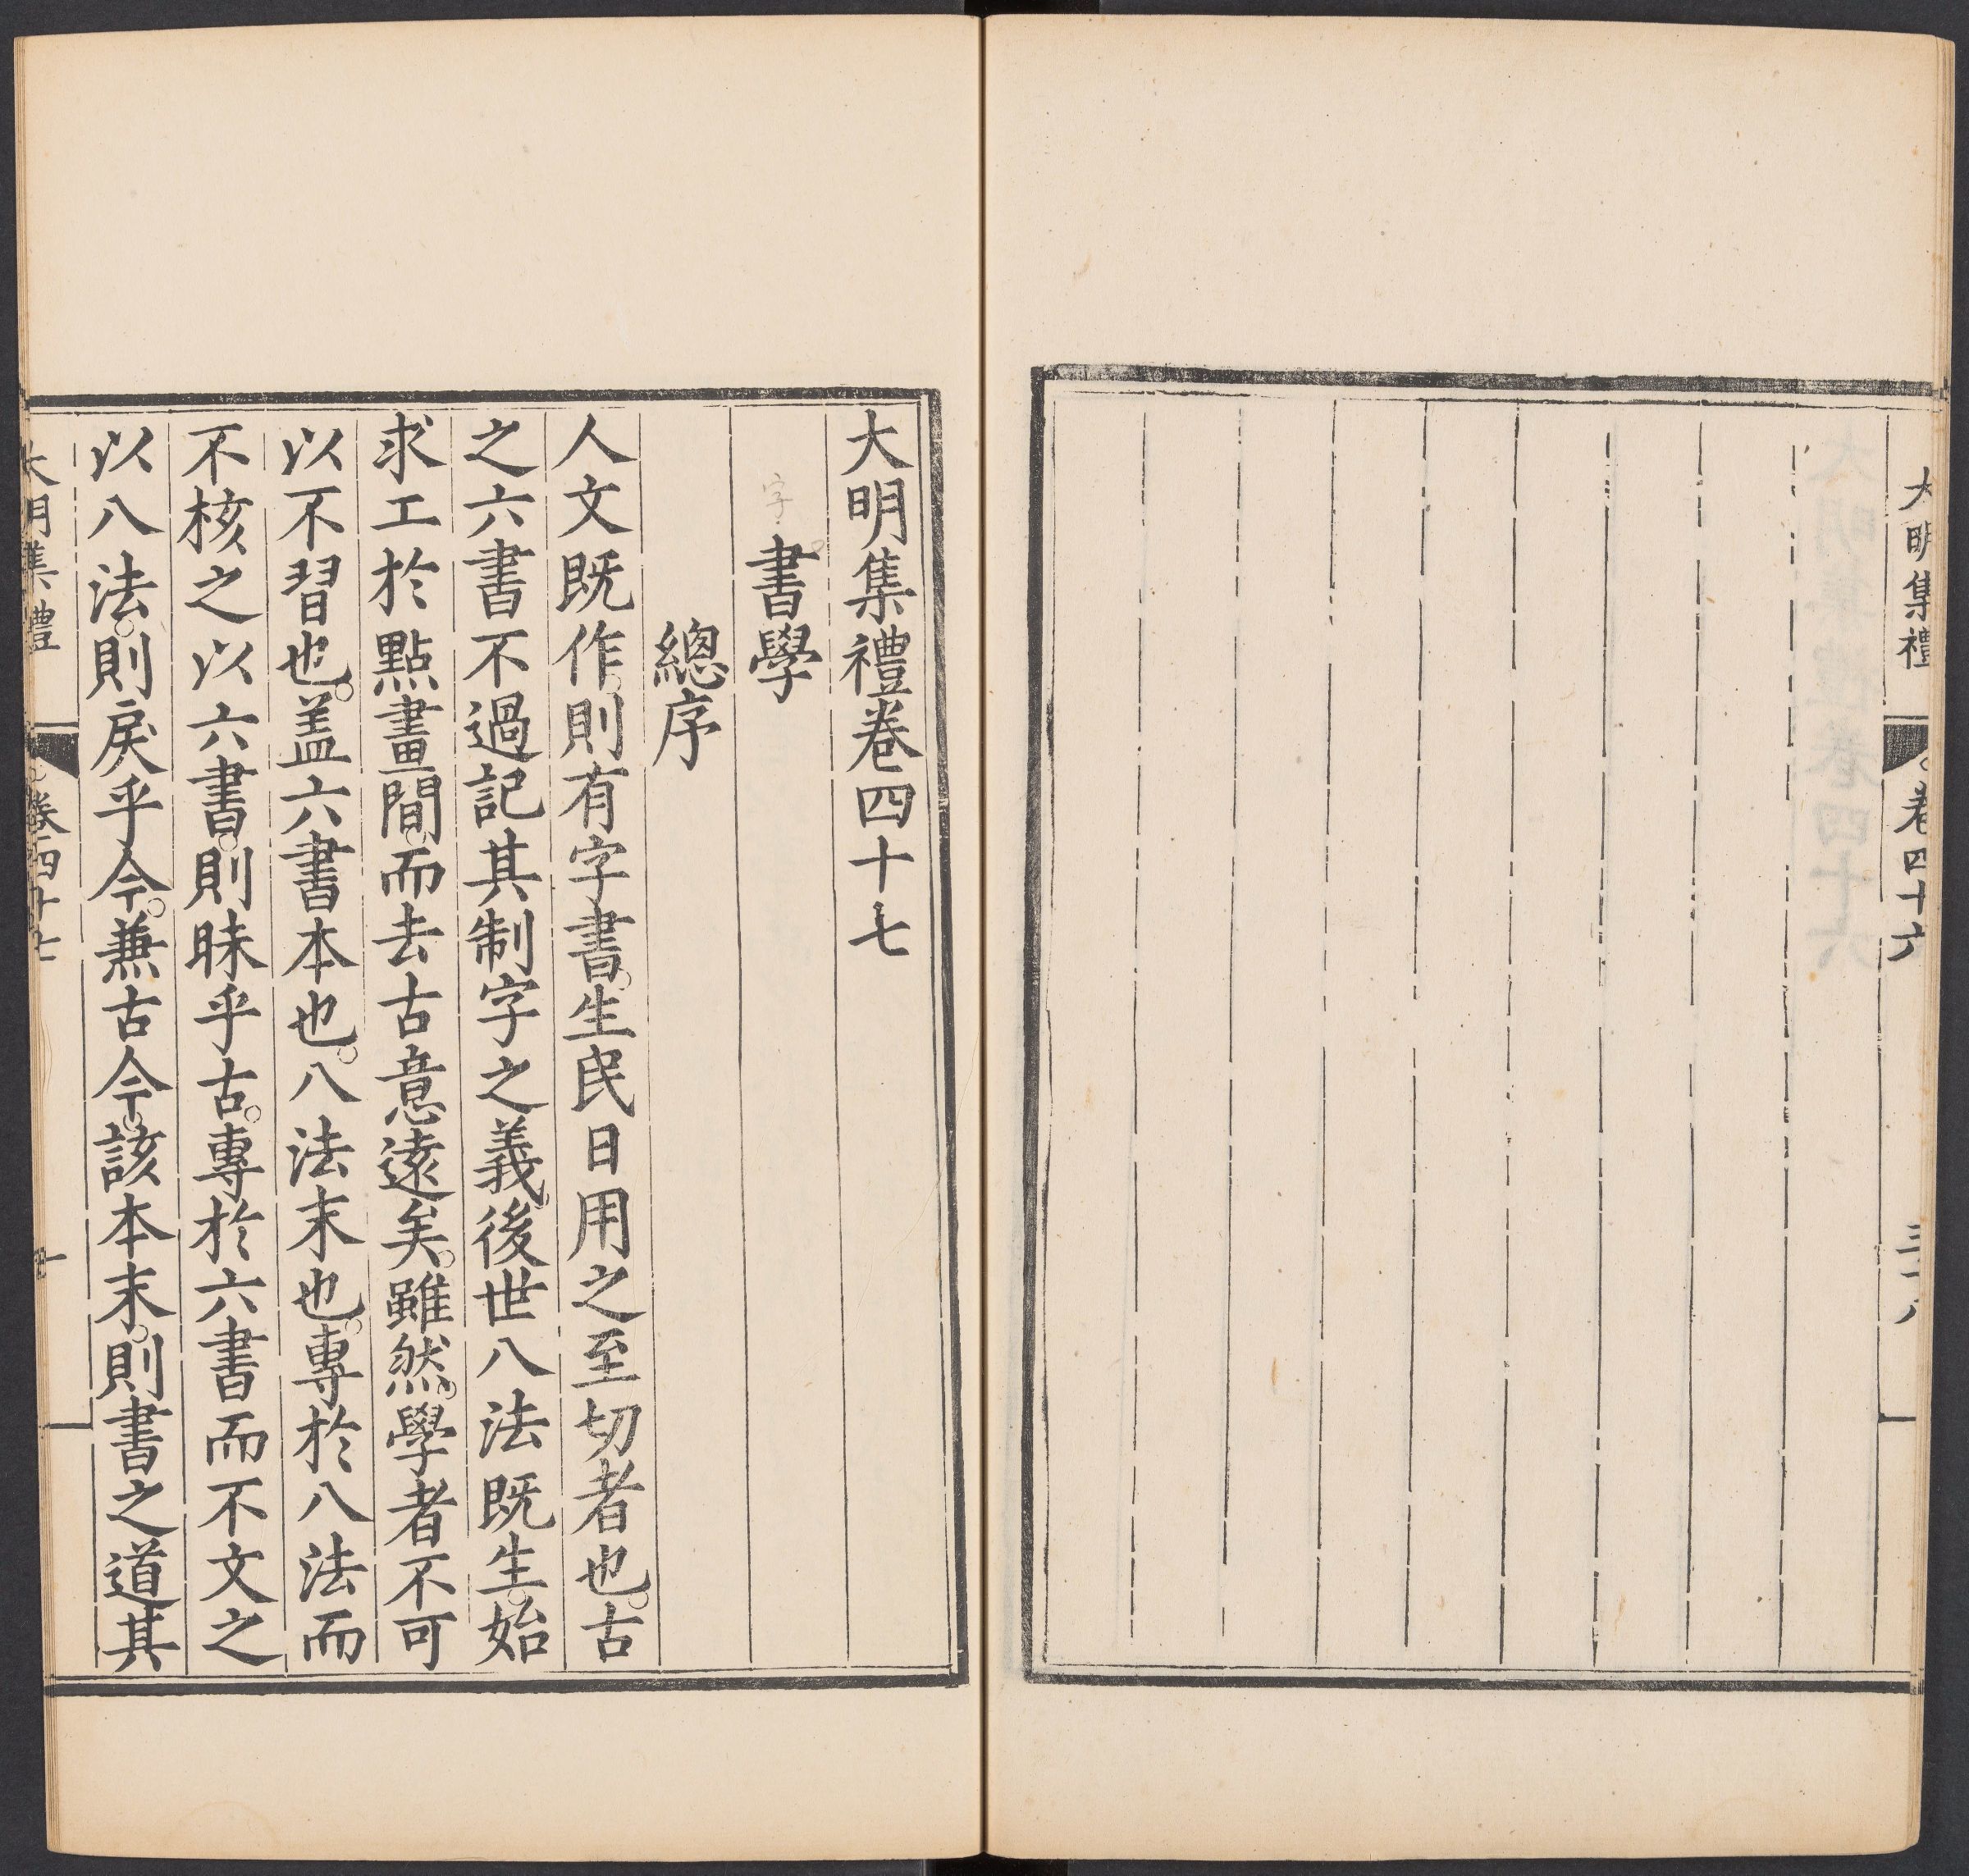 大明集禮
卷四十六
三十八
大明集禮卷四十七
字
書學
總序
人文既作。則有字書。生民日用之至切者也。古
之六書不過記其制字之義。後世八法既生。始
求工於點畫間。而去古意遠矣。雖然。學者不可
以不習也。盖六書本也。八法末也。專於八法而
不核之以六書。則昧乎古。專於六書而不文之
以八法。則戾乎今。兼古今。該本末。則書之道其
大明集禮
卷四十七
一